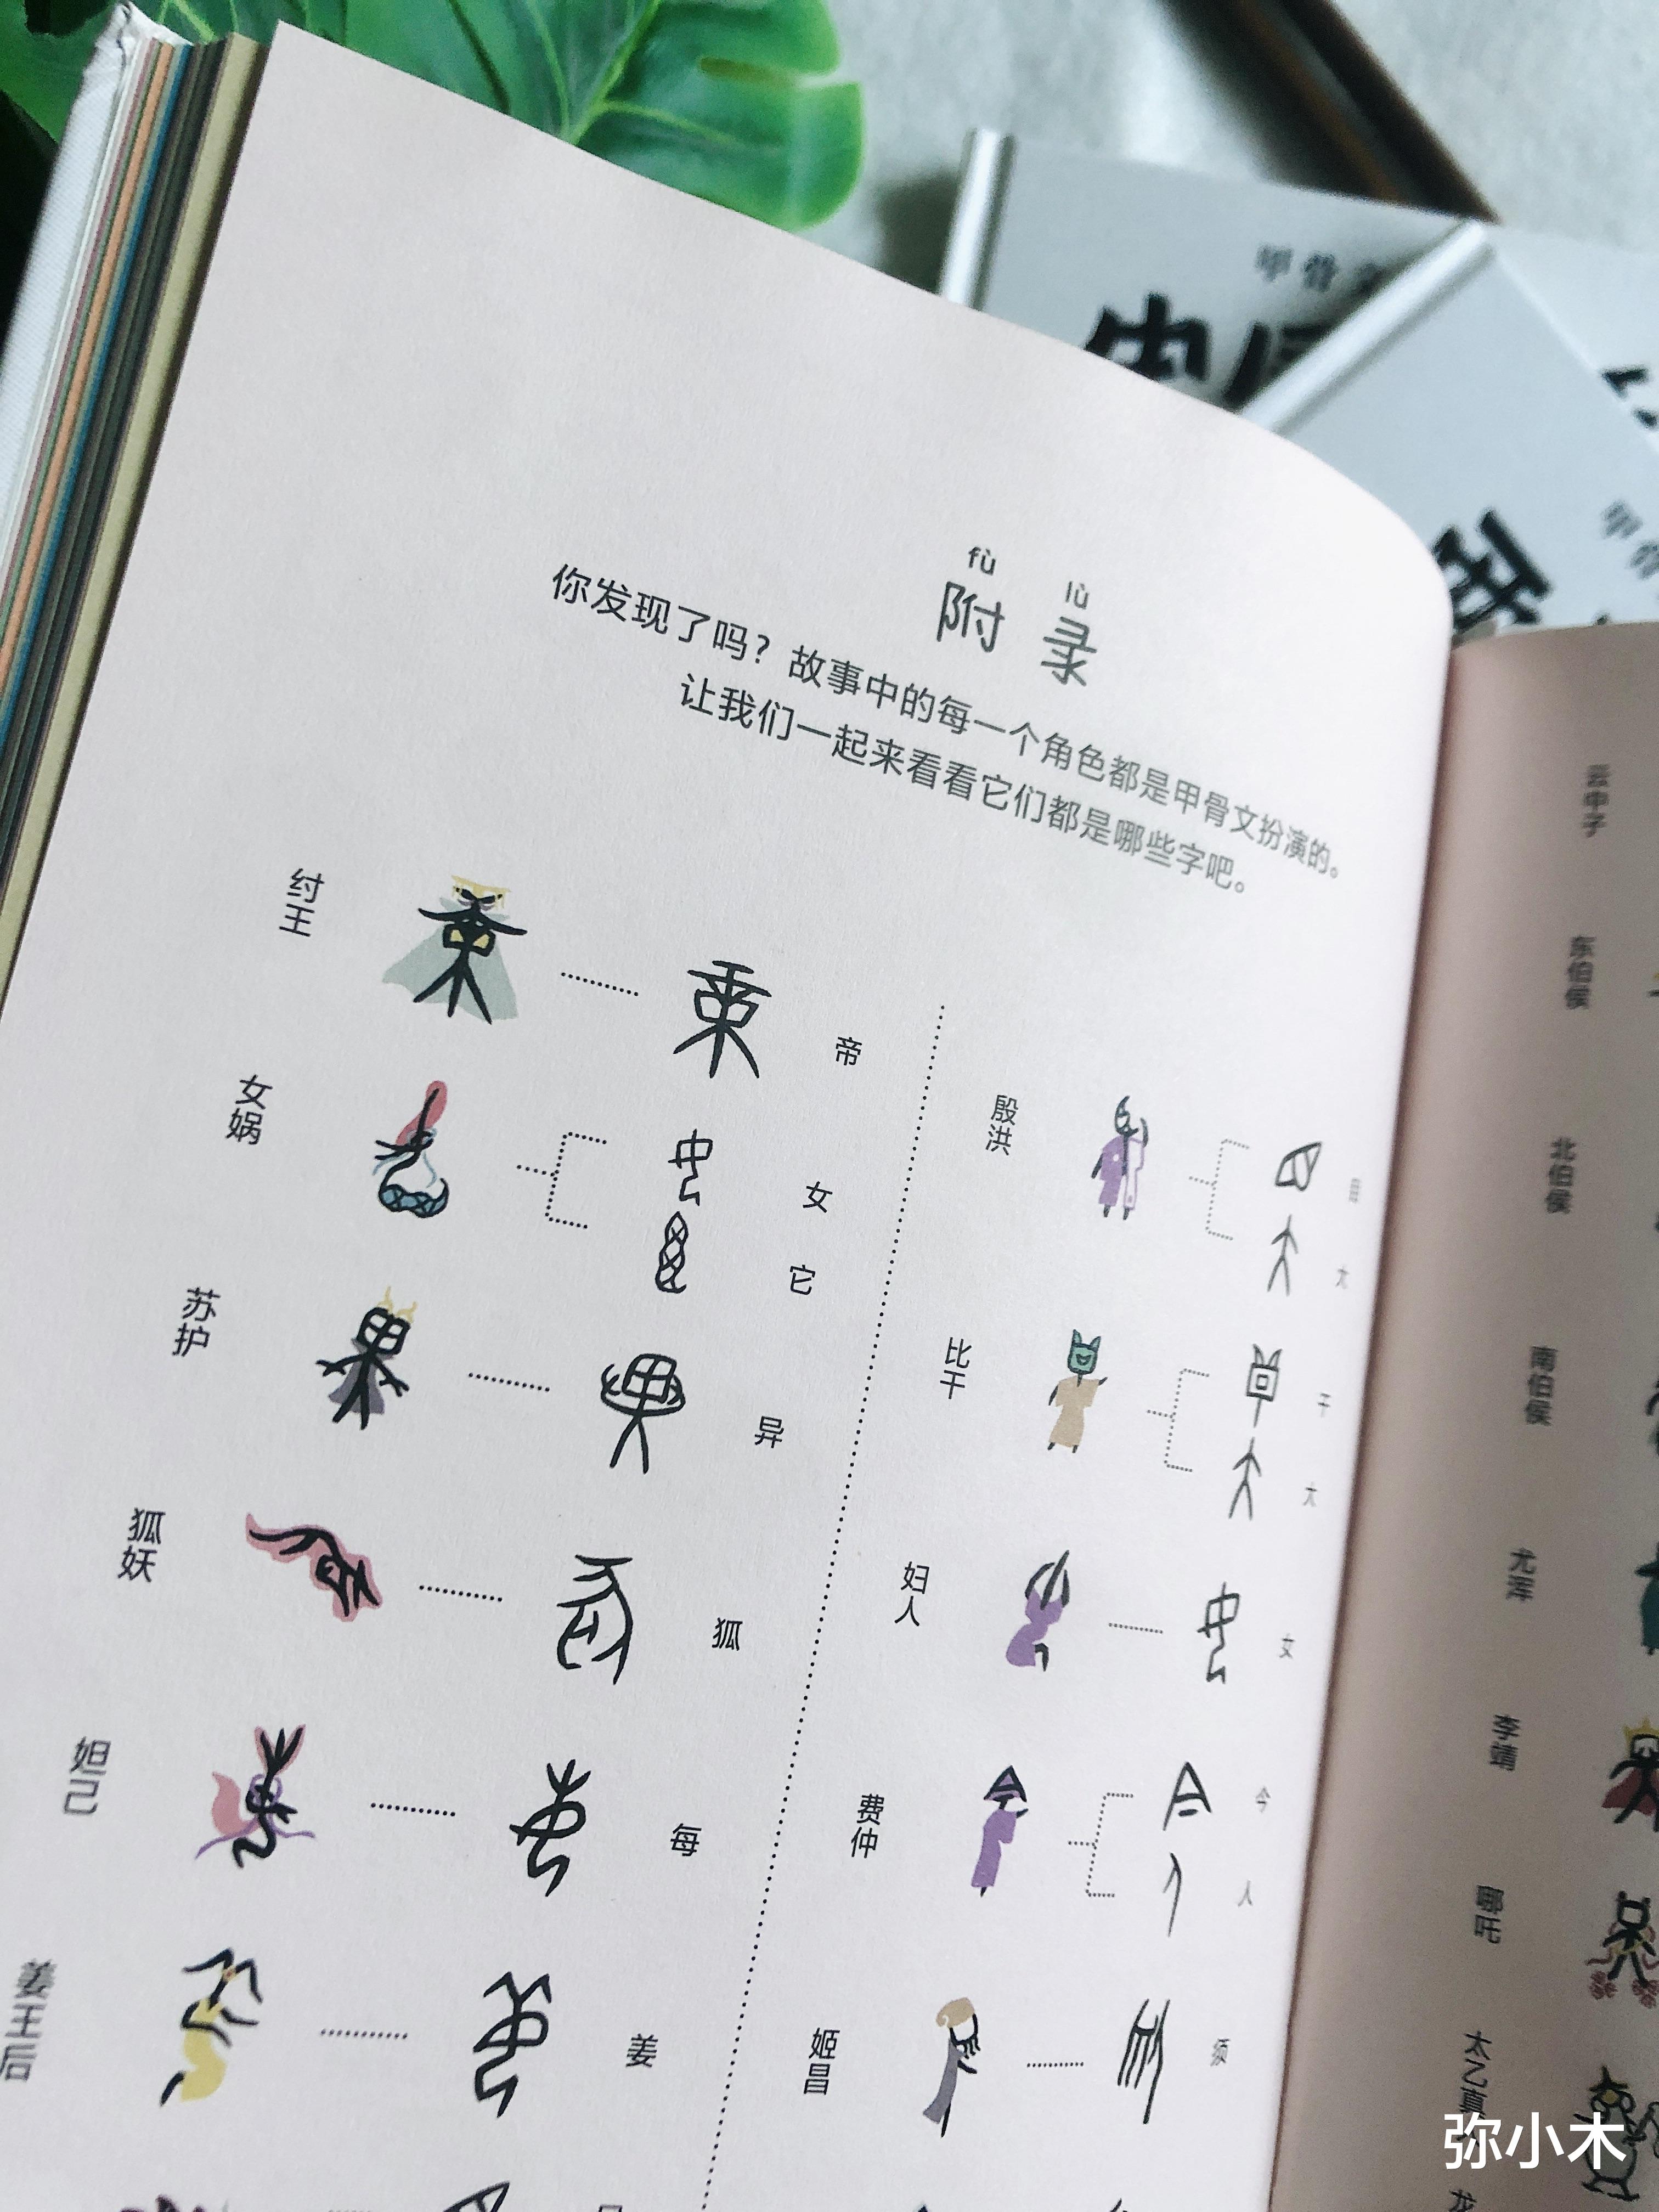 fù lù
附录
你发现了吗？故事中的每一个角色都是甲骨文扮演的。
让我们一起来看看它们都是哪些字吧。
纣王
帝
女娲
女
它
苏护
异
狐妖
狐
妲己
每
姜王后
姜
殷洪
大
比干
干
大
妇人
女
费仲
今
人
姬昌
须
云中子
东伯侯
北伯侯
南伯侯
尤浑
李靖
哪吒
太乙真
龙
甲骨
弥小木